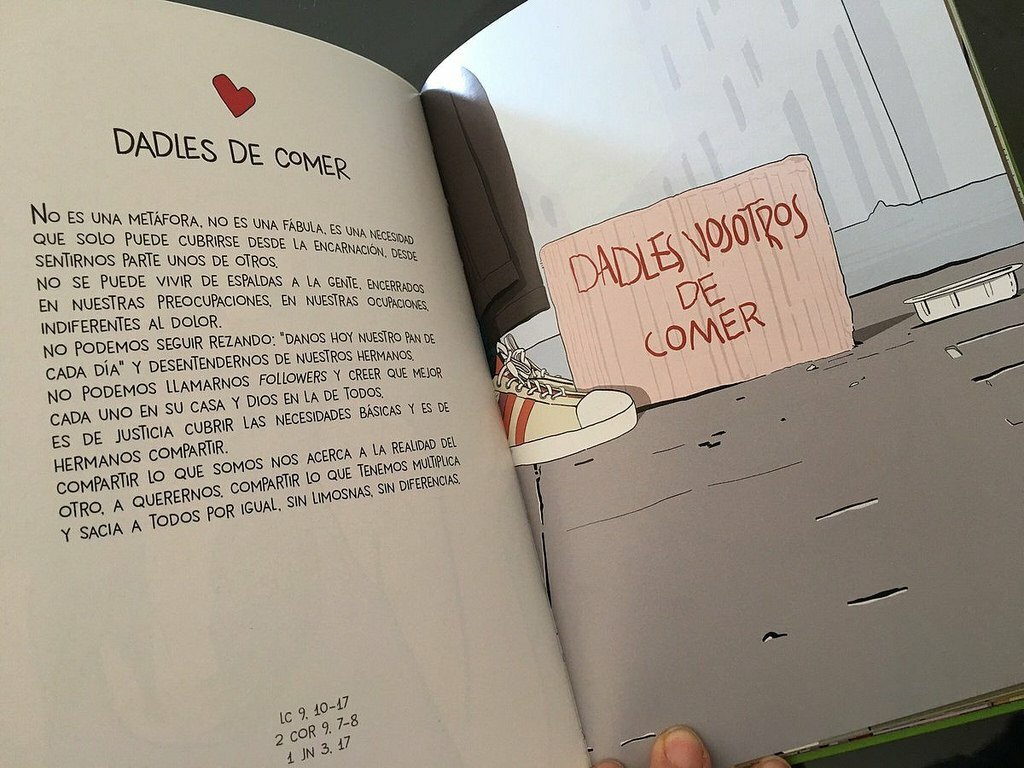 DADLES DE COMER
NO ES UNA METÁFORA, NO ES UNA FÁBULA, ES UNA NECESIDAD
QUE SOLO PUEDE CUBRIRSE DESDE LA ENCARNACIÓN, DESDE
SENTIRNOS PARTE UNOS DE OTROS.
NO SE PUEDE VIVIR DE ESPALDAS A LA GENTE, ENCERRADOS
EN NUESTRAS PREOCUPACIONES, EN NUESTRAS OCUPACIONES,
INDIFERENTES AL DOLOR.
NO PODEMOS SEGUIR REZANDO: "DANOS HOY NUESTRO PAN DE
CADA DÍA" Y DESENTENDERNOS DE NUESTROS HERMANOS.
NO PODEMOS LLAMARNOS FOLLOWERS Y CREER QUE MEJOR
CADA UNO EN SU CASA Y DIOS EN LA DE TODOS.
ES DE JUSTICIA CUBRIR LAS NECESIDADES BÁSICAS Y ES DE
HERMANOS COMPARTIR.
COMPARTIR LO QUE SOMOS NOS ACERCA A LA REALIDAD DEL
OTRO, A QUERERNOS. COMPARTIR LO QUE TENEMOS MULTIPLICA
Y SACIA A TODOS POR IGUAL, SIN LIMOSNAS, SIN DIFERENCIAS.
LC 9, 10-17
2 COR 9, 7-8
1 JN 3, 17
DADLES VOSOTROS
DE
COMER